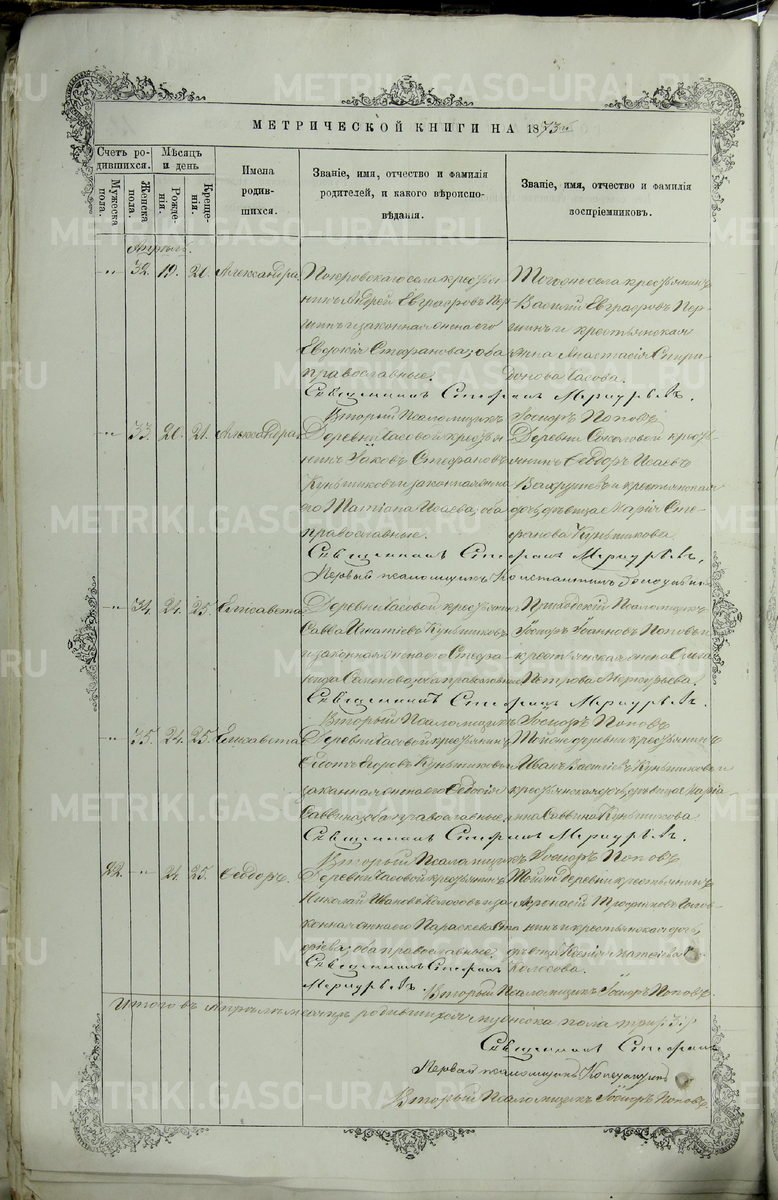 МЕТРИЧЕСКОЙ КНИГИ НА 1873й
Счетъ родившихся.
Мужеска пола.
Женска пола.
Мѣсяцъ и день
Рожденія.
Крещенія.
Имена родившихся.
Званіе, имя, отчество и фамилія родителей, и какого вѣроисповѣданія.
Званіе, имя, отчество и фамилія воспріемниковъ.
Апрѣль.
32. 19. 21. Александра.
Покровскаго села крестьянинъ Андрей Евграфовъ
и законная жена его
Евдокія Стефанова; оба
православные.
Тогоже села крестьянинъ
Василій Евграфовъ
и крестьянская
жена Анастасія Спиридонова Часова.
Священникъ Стефанъ Меркурьевъ.
Вторый Псаломщикъ Іосифъ Поповъ.
33. 20. 21. Александра.
Деревни Часовой крестьянинъ Іаковъ Стефановъ
Куньщиковъ и законная жена
его Татіана Исаева, оба
православные.
Деревни Соколовой крестьянинъ Ѳеодоръ Исаевъ
Вахрушевъ и крестьянская
дочь, дѣвица Марія Стефанова Куньщикова.
Священникъ Стефанъ Меркурьевъ.
Первый псаломщикъ Константинъ
34. 24. 25. Елисавета
Деревни Часовой крестьянинъ
Савва Игнатіевъ Куньщиковъ
и законная жена его
Семенова, оба православные
Приходскій Псаломщикъ
Іосифъ Іоанновъ Поповъ и
крестьянская жена
Петрова Меркурьева.
Священникъ Стефанъ Меркурьевъ.
Вторый Псаломщикъ Іосифъ Поповъ
35. 24. 25. Елисавета
Деревни Часовой крестьянинъ
Егоровъ Куньщиковъ и
законная жена его
Саввина, оба православные.
Тойже деревни крестьянинъ
Иванъ Васильевъ Куньщиковъ и
крестьянская дочь, дѣвица Марія
Саввина Куньщикова
Священникъ Стефанъ Меркурьевъ.
Вторый Псаломщикъ Іосифъ Поповъ
22. 24. 25. Ѳеодоръ.
Деревни Часовой крестьянинъ
Николай Ивановъ Колосовъ и законная жена его Параскева
оба православные.
Тойже деревни крестьянинъ
Афанасій Трофимовъ
и крестьянская дочь,
дѣвица Ксенія Матѳіева
Колосова.
Священникъ Стефанъ
Меркурьевъ.
Вторый Псаломщикъ Іосифъ Поповъ.
Итого въ Апрѣлѣ мѣсяцѣ родившихся мужеска пола три /3/
Священникъ Стефанъ
Первый псаломщикъ Константинъ
Вторый Псаломщикъ Іосифъ Поповъ.
METRIKI.GASO-URAL.RU